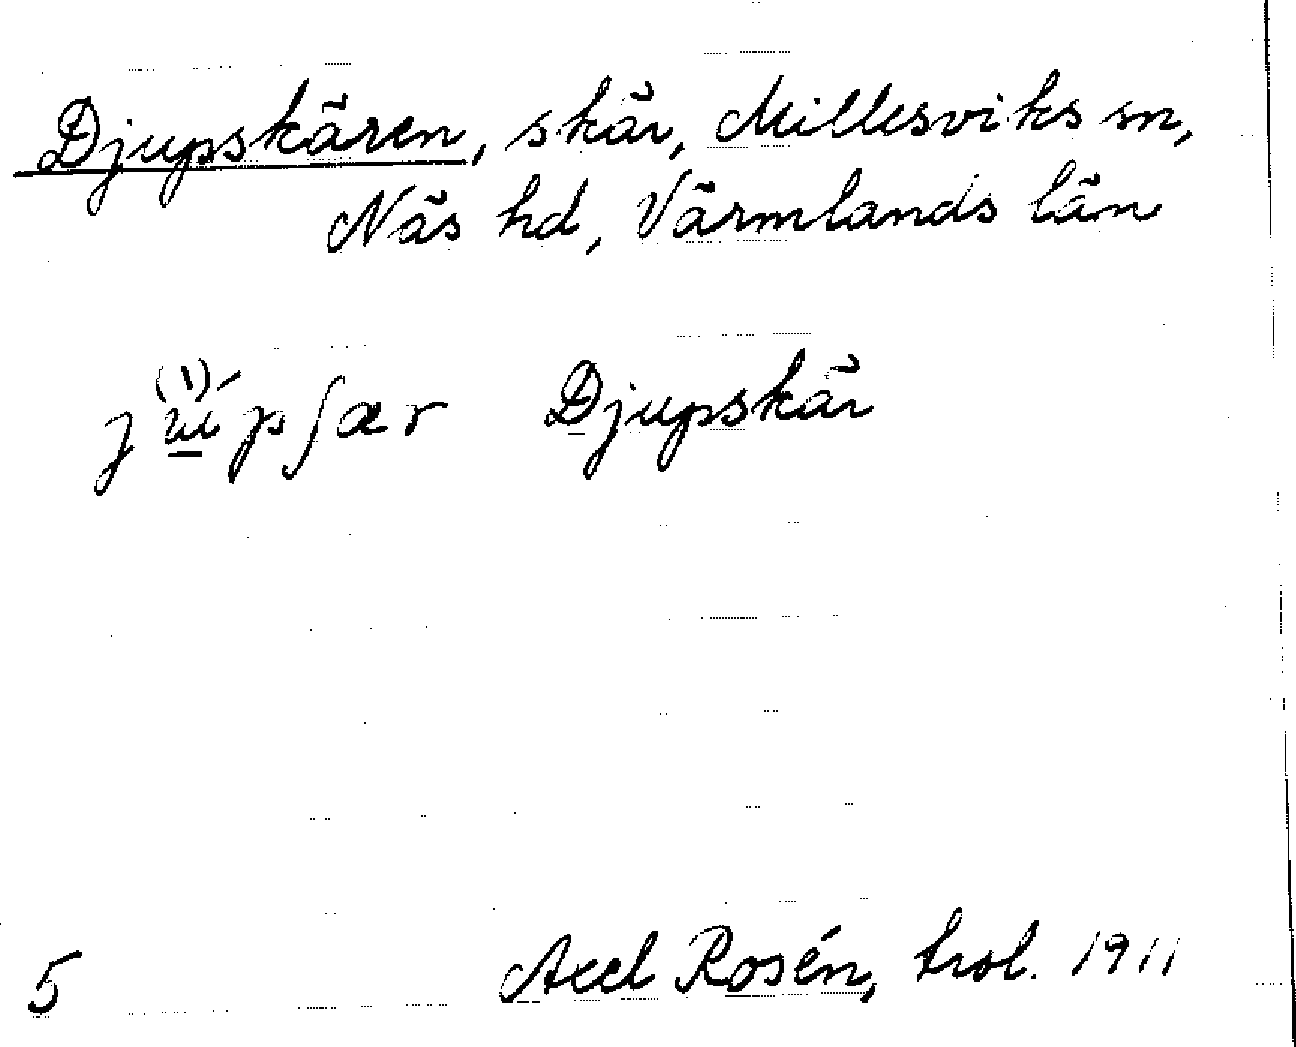 Djupskären, skär, Millesviks sn,
Näs hd, Värmlands län
Djupskär
5 Axel Rosén, trol. 1911